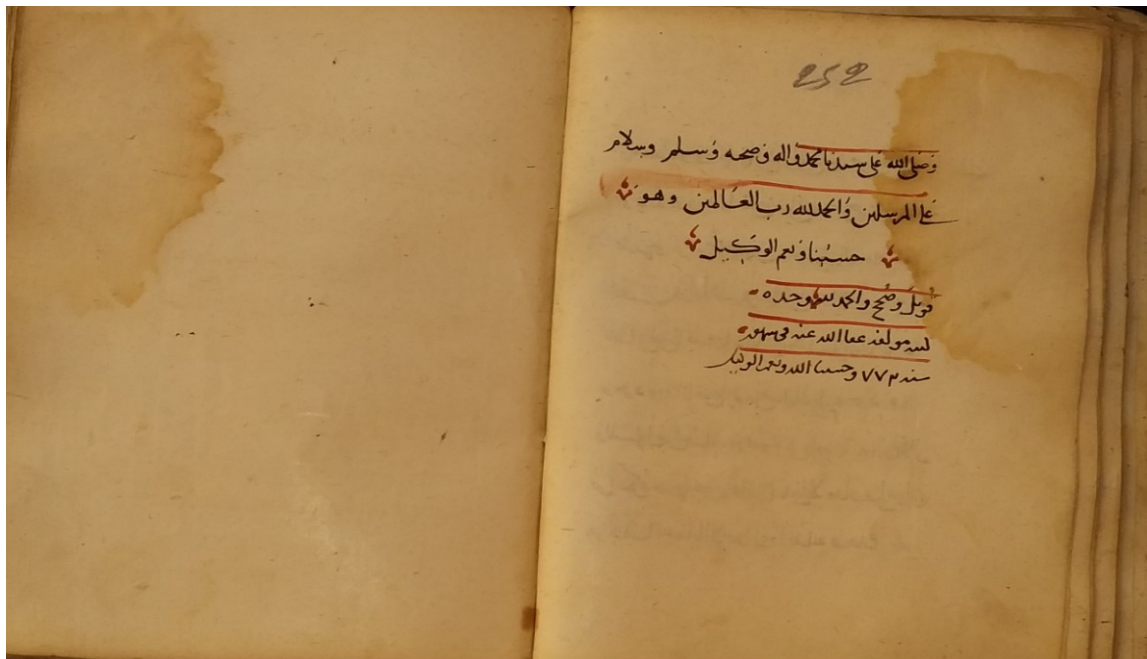 252
وصلى الله على سيدنا محمد واله وصحبه وسلم وسلام
على المرسلين والحمد لله رب العالمين وهو
حسبنا ونعم الوكيل
قوبل وصح والحمد لله وحده
مولفه عفا الله عنه في
سنه ٧٧٣ وحسبنا الله ونعم الوكيل